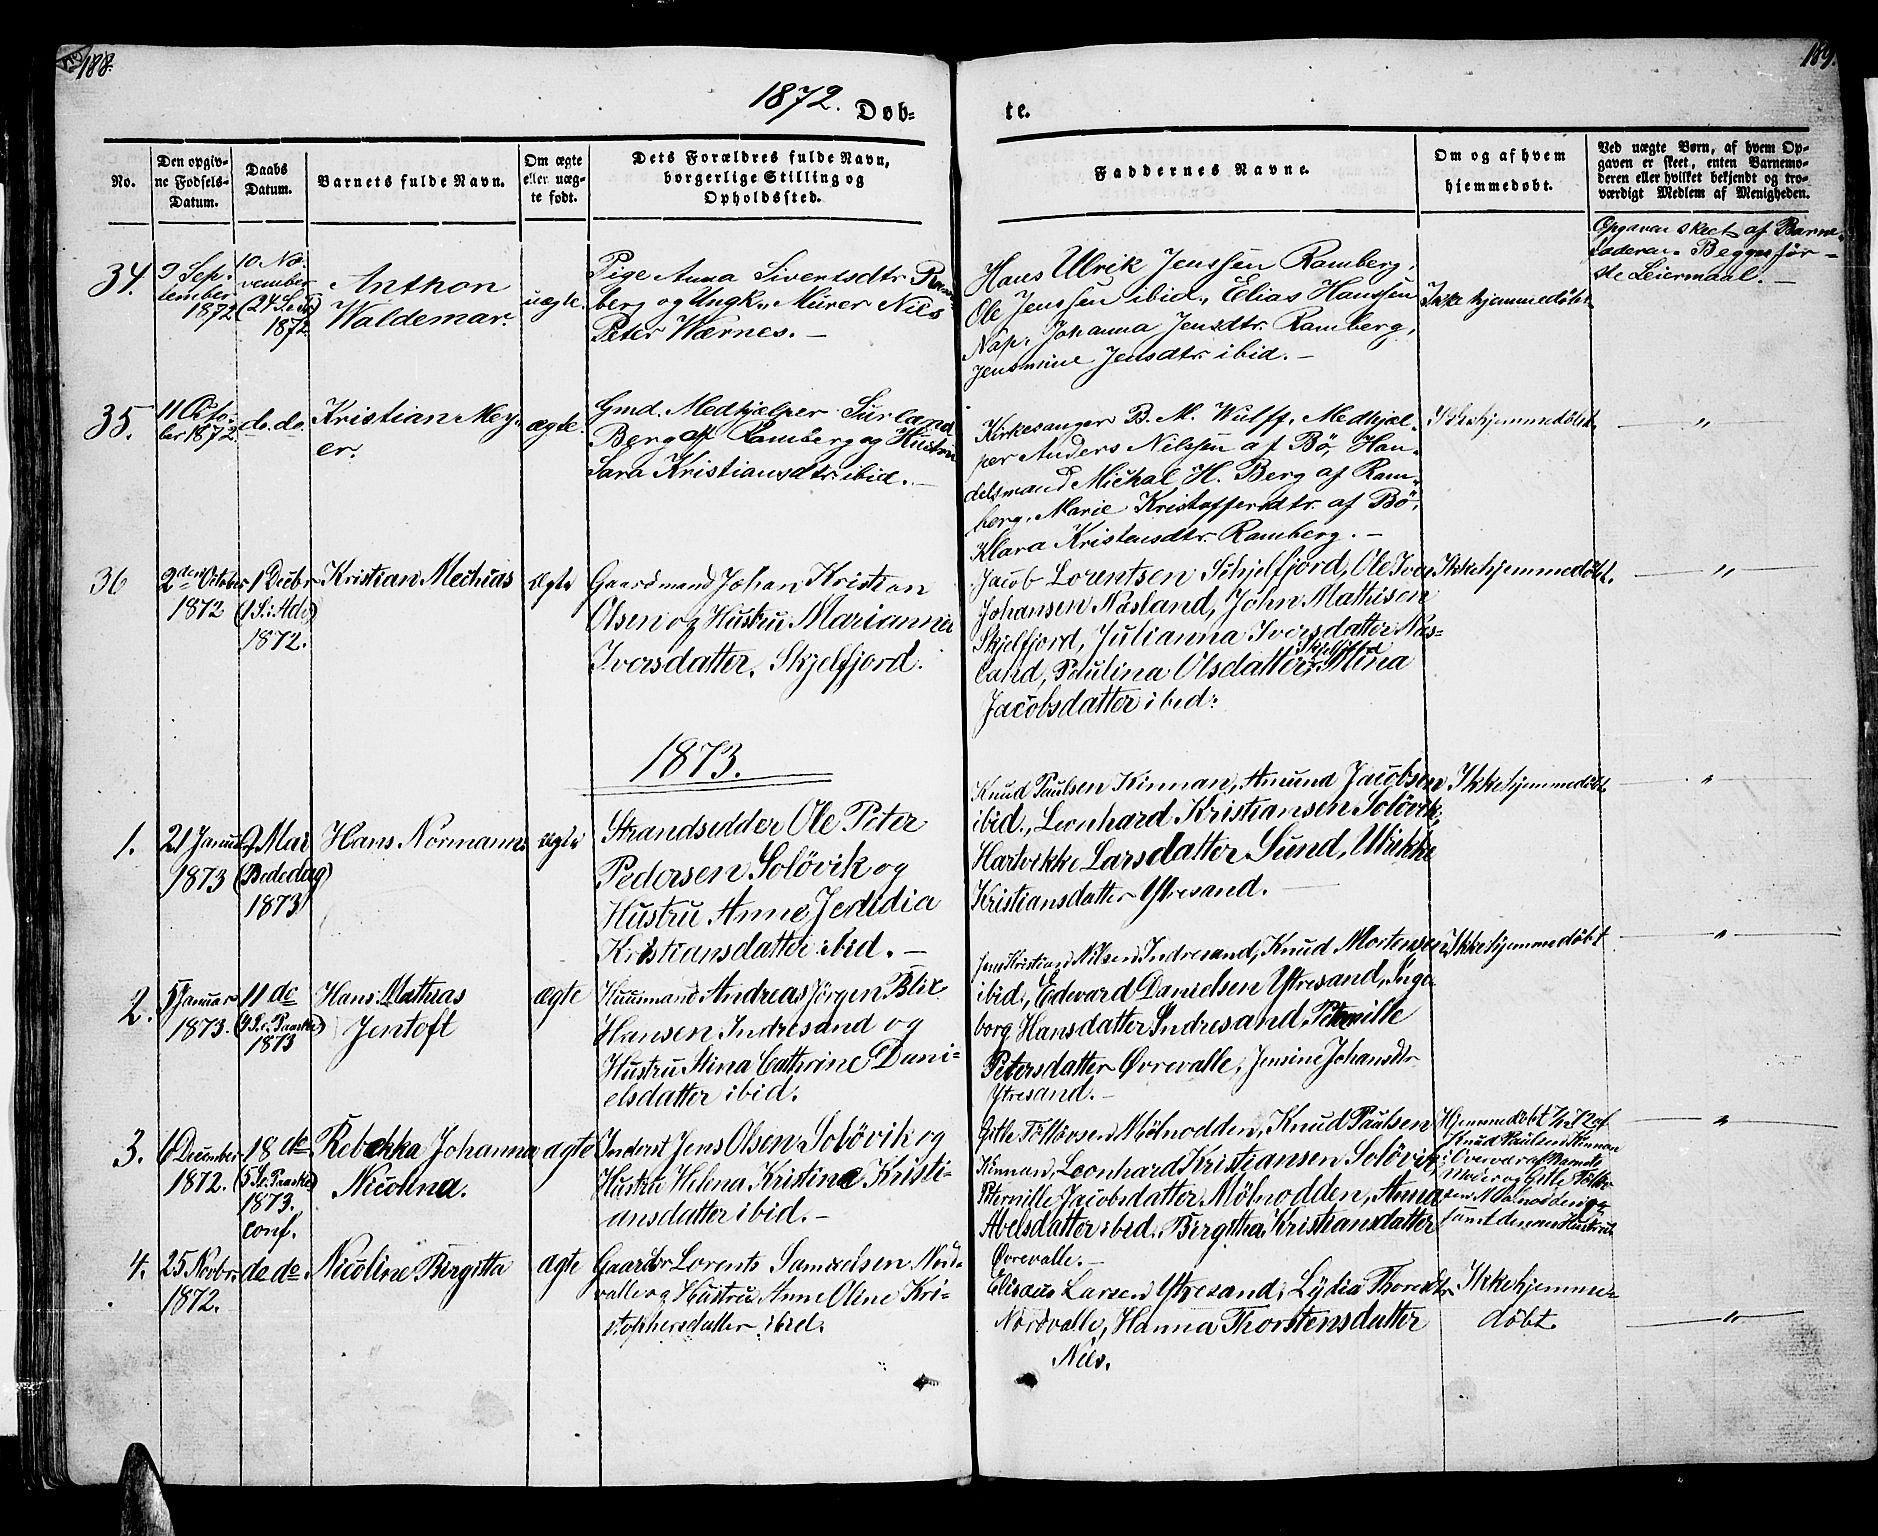 188.
189.
1872. Døb-
te.
No.
Den opgiv-
ne Fødsels-
Datum.
Daabs
Datum.
Barnets fulde Navn.
Om ægte
eller uæg-
te født.
Dets Forældres fulde Navn,
borgerlige Stilling og
Opholdssted.
Faddernes Navne.
Om og af hvem
hjemmedøbt.
Ved uægte Børn, af hvem Op-
gaven er skeet, enten Barnemo-
deren eller hvilket bekjendt og tro-
værdigt Medlem af Menigheden.
34.
9 Sep-
tember
1872
10 No-
vember
1872
Anthon
Waldemar.
uægte.
Pige Anna Sivertsdtr. Ram-
berg og Ungk. Murer Nils
Peter Wærnes. —
Hans Ulrik Jenssen Ramberg,
Ole Jenssen ibid., Elias Hanssen
Nap, Johanna Jensdtr. Ramberg,
Jensmine Jensdtr. ibid. —
Ikke hjemmedøbt.
Opgaven skeet af Barne-
faderen. Begges før-
ste Leiermaal. —
35.
11 Octo-
ber 1872.
do. do.
Kristian Mey-
er.
ægte.
Gmd. Medhjælper
Berg af Ramberg og Hustru
Sara Kristiansdtr. ibid. —
Kirkesanger B. M. Wulff, Medhjæl-
per Anders Nilssen af Bö, Han-
delsmand Michal H. Berg af Ram-
berg, Marie Kristoffersdtr. af Bö,
Klara Kristensdtr. Ramberg. —
Ikke hjemmedøbt.
"
36
2den October
1872
1 Decbr.
(1 S. i Adv.)
1872.
Kristian Mechias
ægte
Gaardmand Johan Kristian
Olsen og Hustru Marianna
Iversdatter. Skjelfjord.
Jacob Lorentsen Schjelfjord, Ole Iver
Johansen Næsland, John Mathisen
Skjelfjord, Julianna Iversdatter Næs-
land, Paulina Olsdatter Skjelfjord, Stina
Jacobsdatter ibid:
Ikke hjemmedøbt.
"
1873.
1.
21 Januar
1873
9 Mai
(Bededag)
1873
Hans Normann
ægte
Strandsidder Ole Peter
Pedersen Solövik og
Hustru Anne Jedidia
Kristiansdatter ibid. —
Knud Paulsen Kinnan, Amund Jacobsen
ibid., Leonhard Kristiansen Solövik,
Hartvikke Larsdatter Sund, Ulrikke
Kristiansdatter Ytresand. —
Ikke hjemmedøbt.
"
2.
5 Januar
1873.
11 de
1873
Hans Mathias
Jentoft
ægte
Huusmand Andreas Jörgen Blix
Hansen Indresand og
Hustru Stina Cathrine Dani-
elsdatter ibid.
Jens Kristian Nilsen Indresand, Knud Mortensen
ibid., Edevard Danielsen Ytresand, Inge-
borg Hansdatter Indresand, Peternille
Petersdatter Øvrevalle, Jensine Johansdtr.
Ytresand. —
Ikke hjemmedøbt
"
3.
6 December
1872.
18 de
1873.
conf.
Rebekka Johanna
Nicolina.
ægte
Inderst Jens Olsen Solövik og
Hustru Helena Kristina Kristi-
ansdatter ibid. —
Knud Paulsen
Kinnan, Leonhard Kristiansen Solövik,
Peternille Jacobsdatter Mölnodden, Anna
Abelsdatter ibid. Birgitha Kristiansdatter
Øvrevalle. —
Hjemmedøbt
Knud Paulsen Kinnan
samt dennes Hustru
"
4.
25 Novbr.
1872.
do do.
Nicoline Birgitta
ægte
Gaardbr Lorents Samuelsen Nord-
valle og Hustru Anne Oline Kri-
stophersdatter ibid.
Elisæus Larsen Ytresand, Lydia Thoresdtr
Nordvalle, Hanna Thorstensdatter
Nils.
Ikke hjemme-
døbt.
"